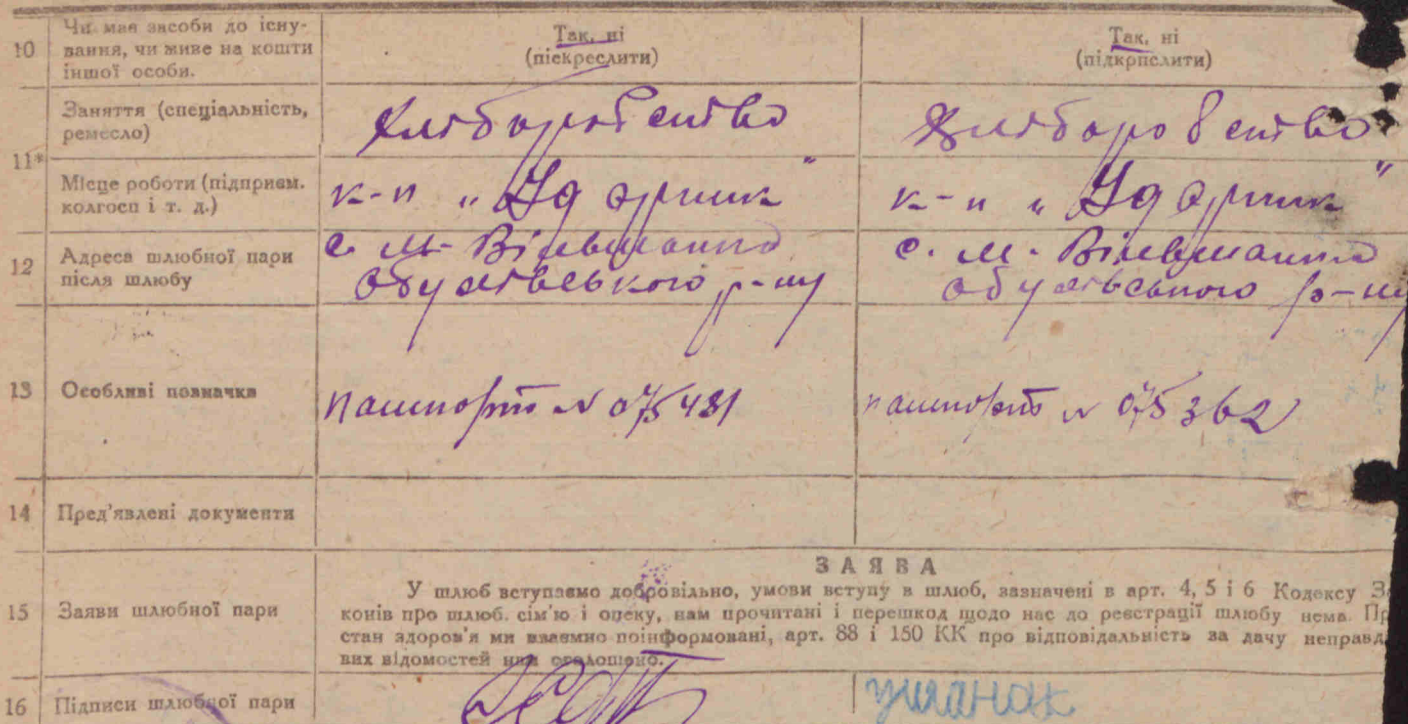 10 Чи має засоби до існу-
вання, чи живе на кошти
іншої особи.
Так, ні
(піскреслити)
Так, ні
(підкрпслити)
11* Заняття (спеціальність,
ремесло)
Хліборобство
Хліборобство
Місце роботи (підприєм.
колгосп і т. д.)
к-п „Ударник"
к-п „Ударник"
12 Адреса шлюбної пари
після шлюбу
с. М-Вільшанка
Обухівського р-ну
с. М-Вільшанка
Обухівського р-ну
13 Особливі позначка
пашпорт № 075481
пашпорт № 075362
14 Пред'явлені документи
15 Заяви шлюбної пари
ЗАЯВА
У шлюб вступаємо добровільно, умови вступу в шлюб, зазначені в арт. 4, 5 і 6 Кодексу З
конів про шлюб. сім'ю і опеку, нам прочитані і перешкод щодо нас до реєстрації шлюбу нема. Пр
стан здоров'я ми взаємно поінформовані, арт. 88 і 150 КК про відповідальність за дачу неправд
вих відомостей нам оголошено.
16 Підписи шлюбної пари